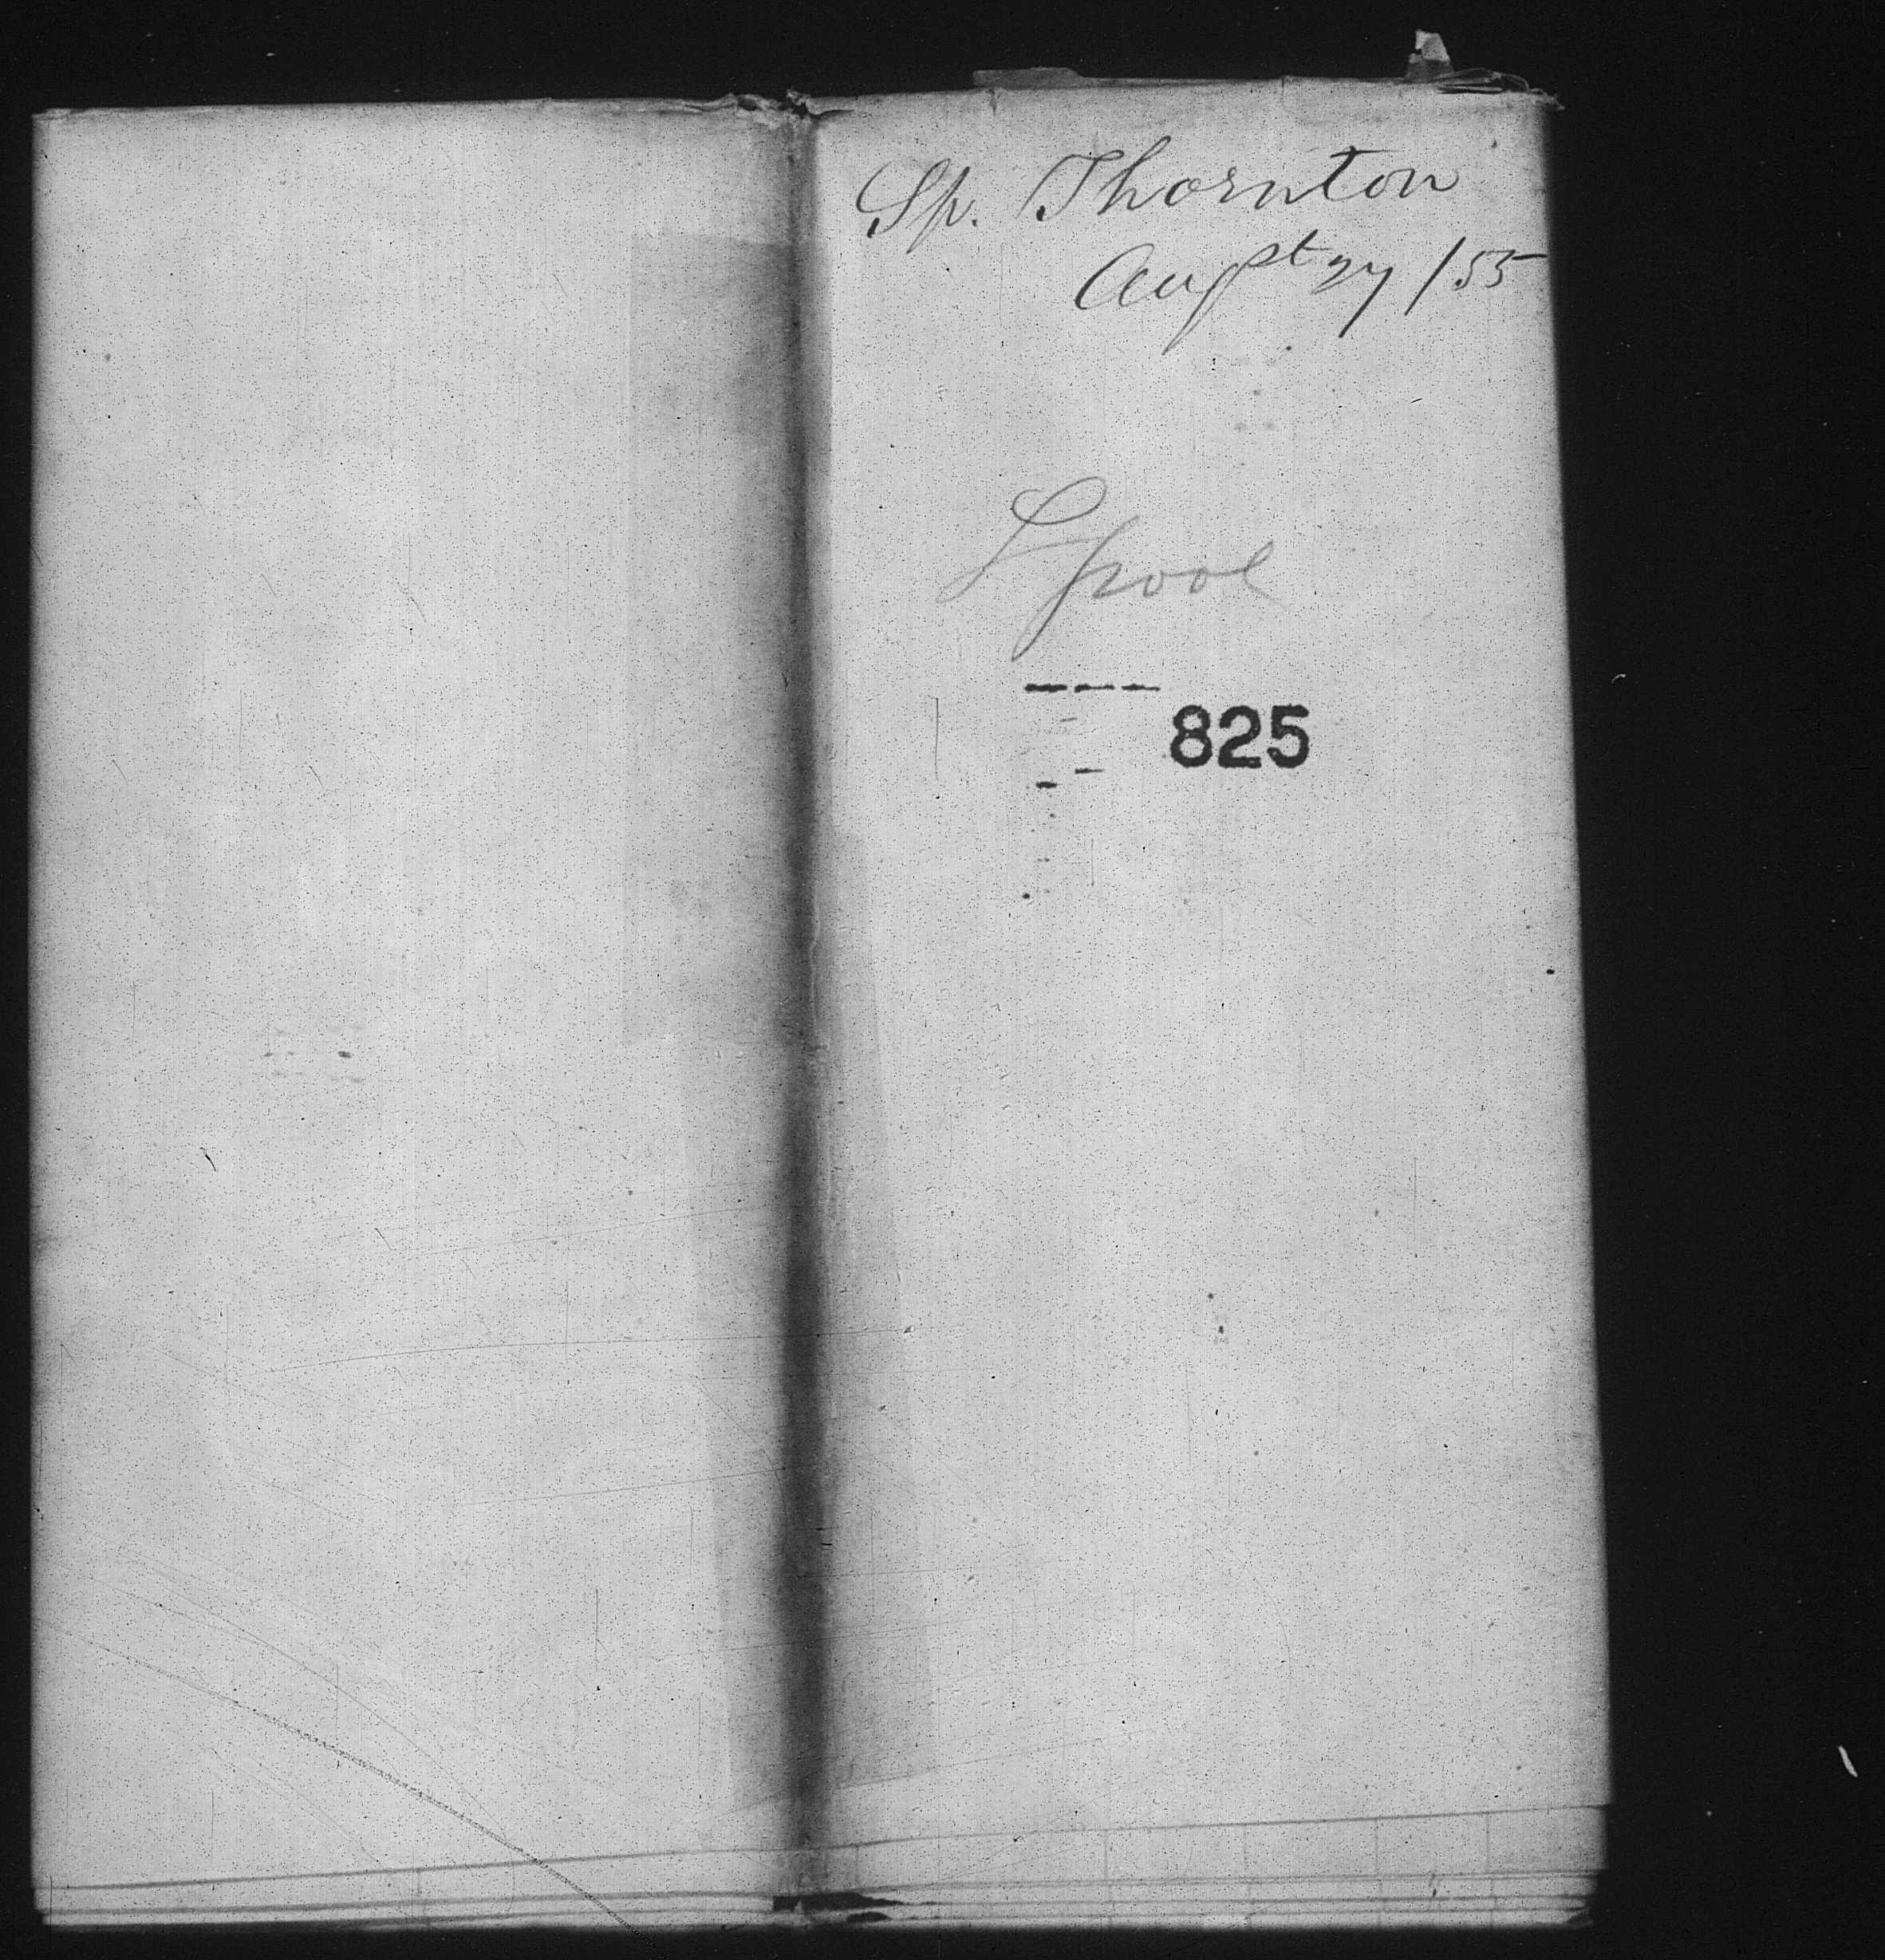 Sp. Thornton
Augst 27/55
Lpool
825